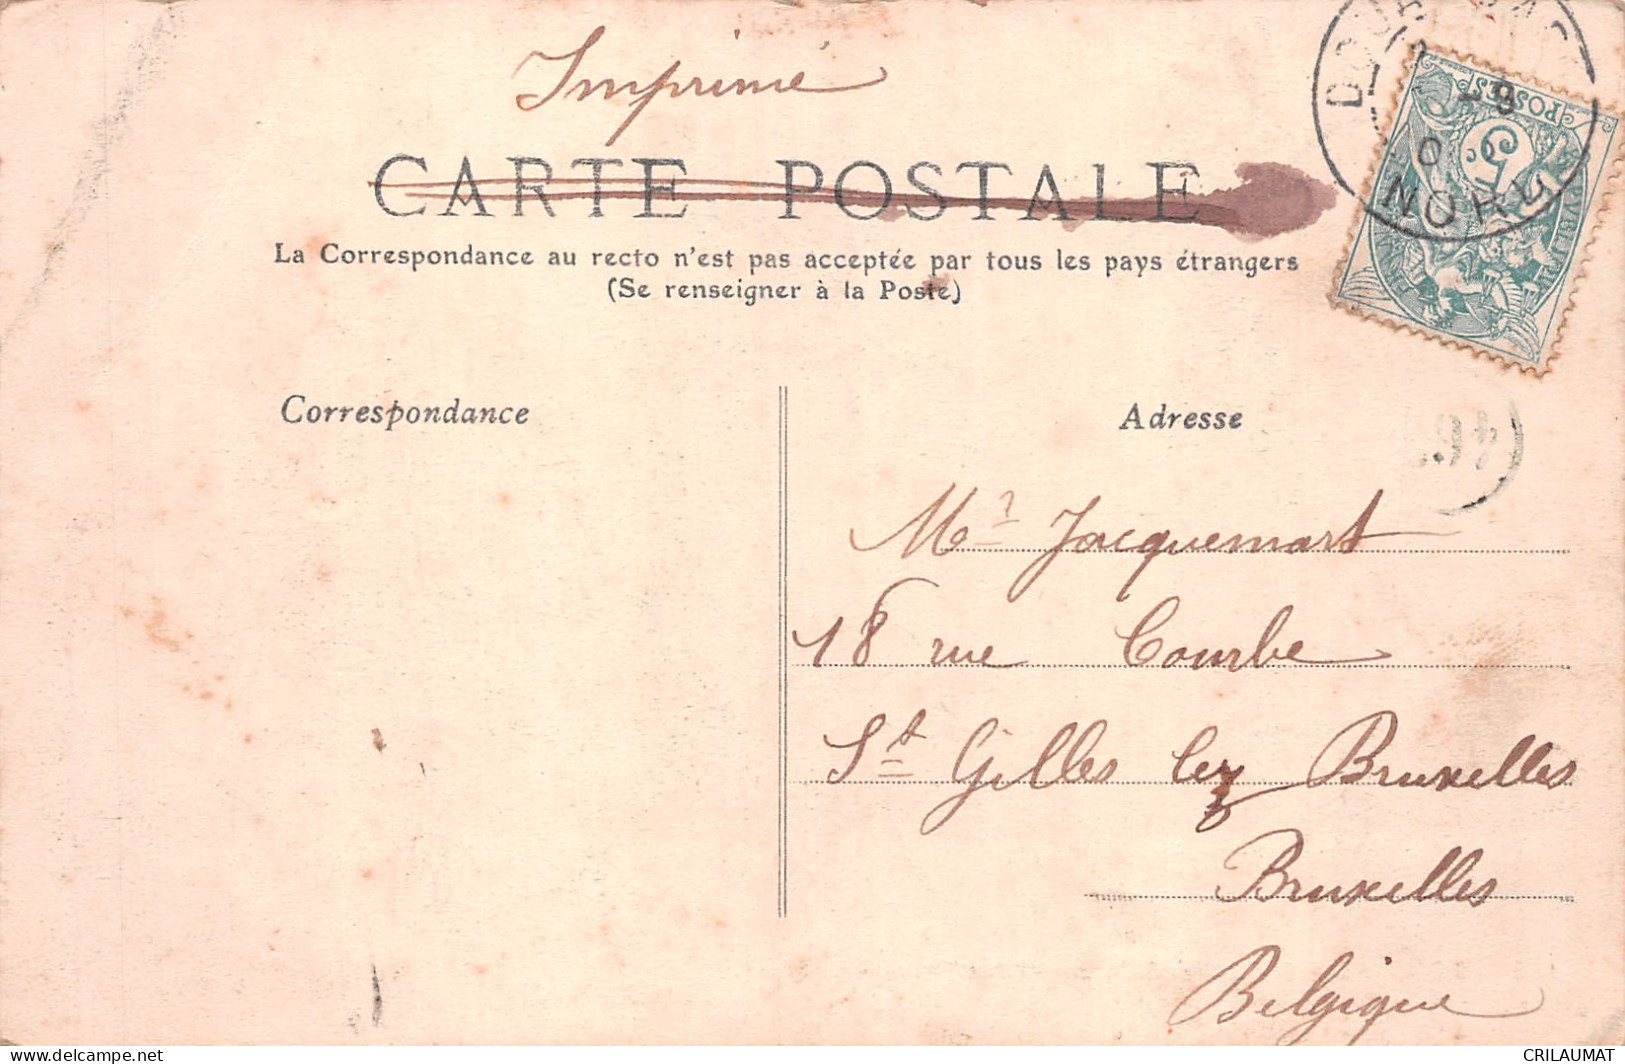 Imprimé
CARTE POSTALE
La Correspondance au recto n'est pas acceptée par tous les pays étrangers
(Se renseigner à la Poste)
POSTES
5
NORD
Correspondance
Adresse
Mr Jacquemart
18 rue Courbe
St Gilles lez Bruxelles
Bruxelles
Belgique
delcampe.net
CRILAUMAT